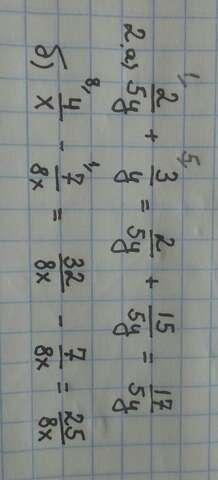 2. а) 2/5y + 3/y = 2/5y + 15/5y = 17/5y
б) 4/x - 7/8x = 32/8x - 7/8x = 25/8x